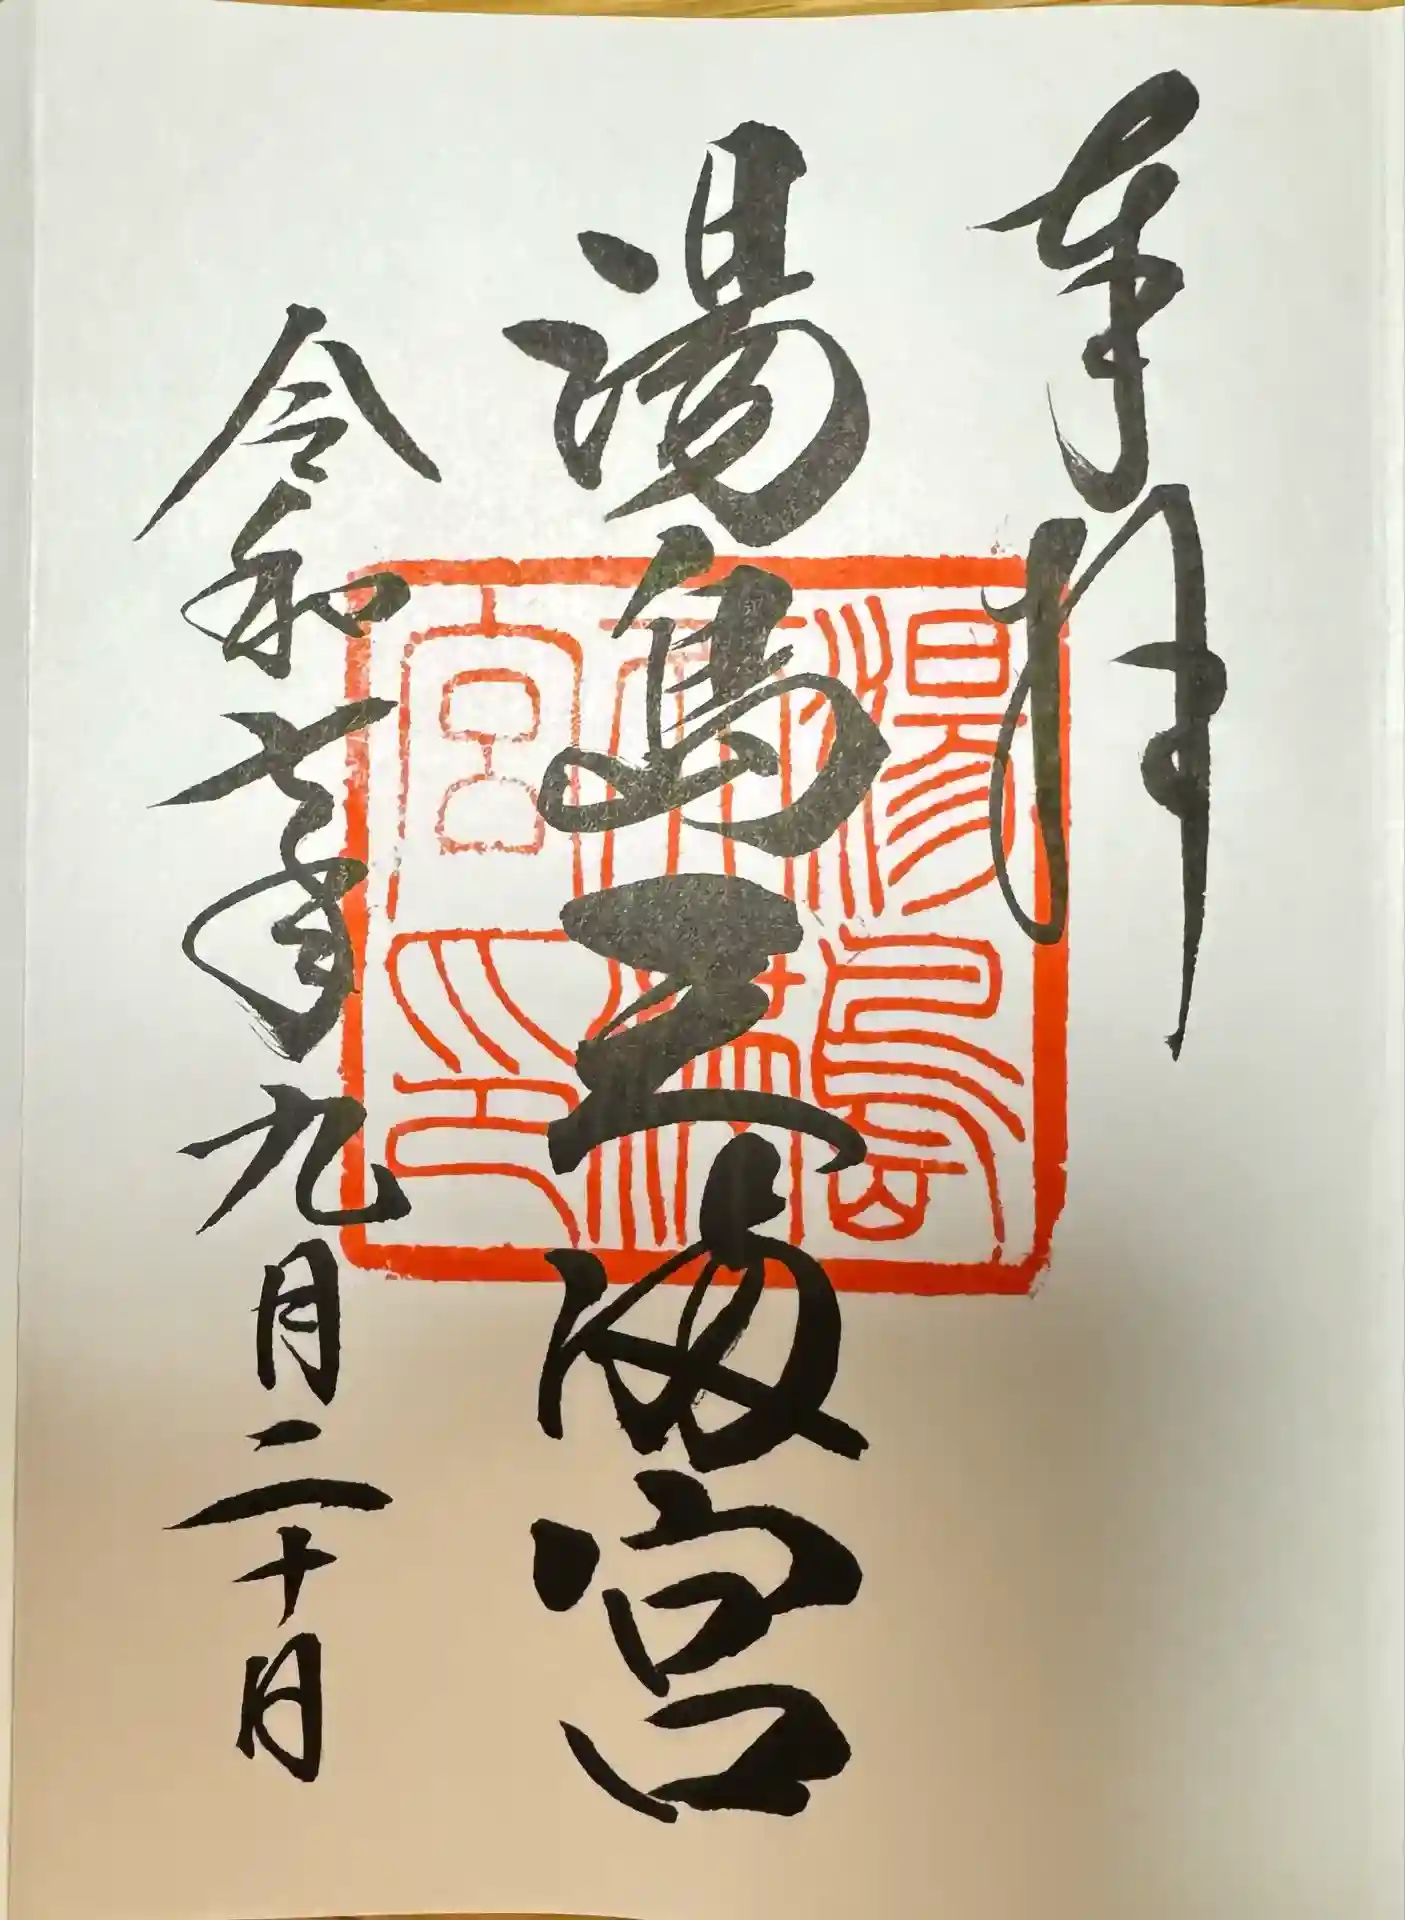 奉拝
湯島天満宮
令和六年九月二十日
湯島
天満
宮印